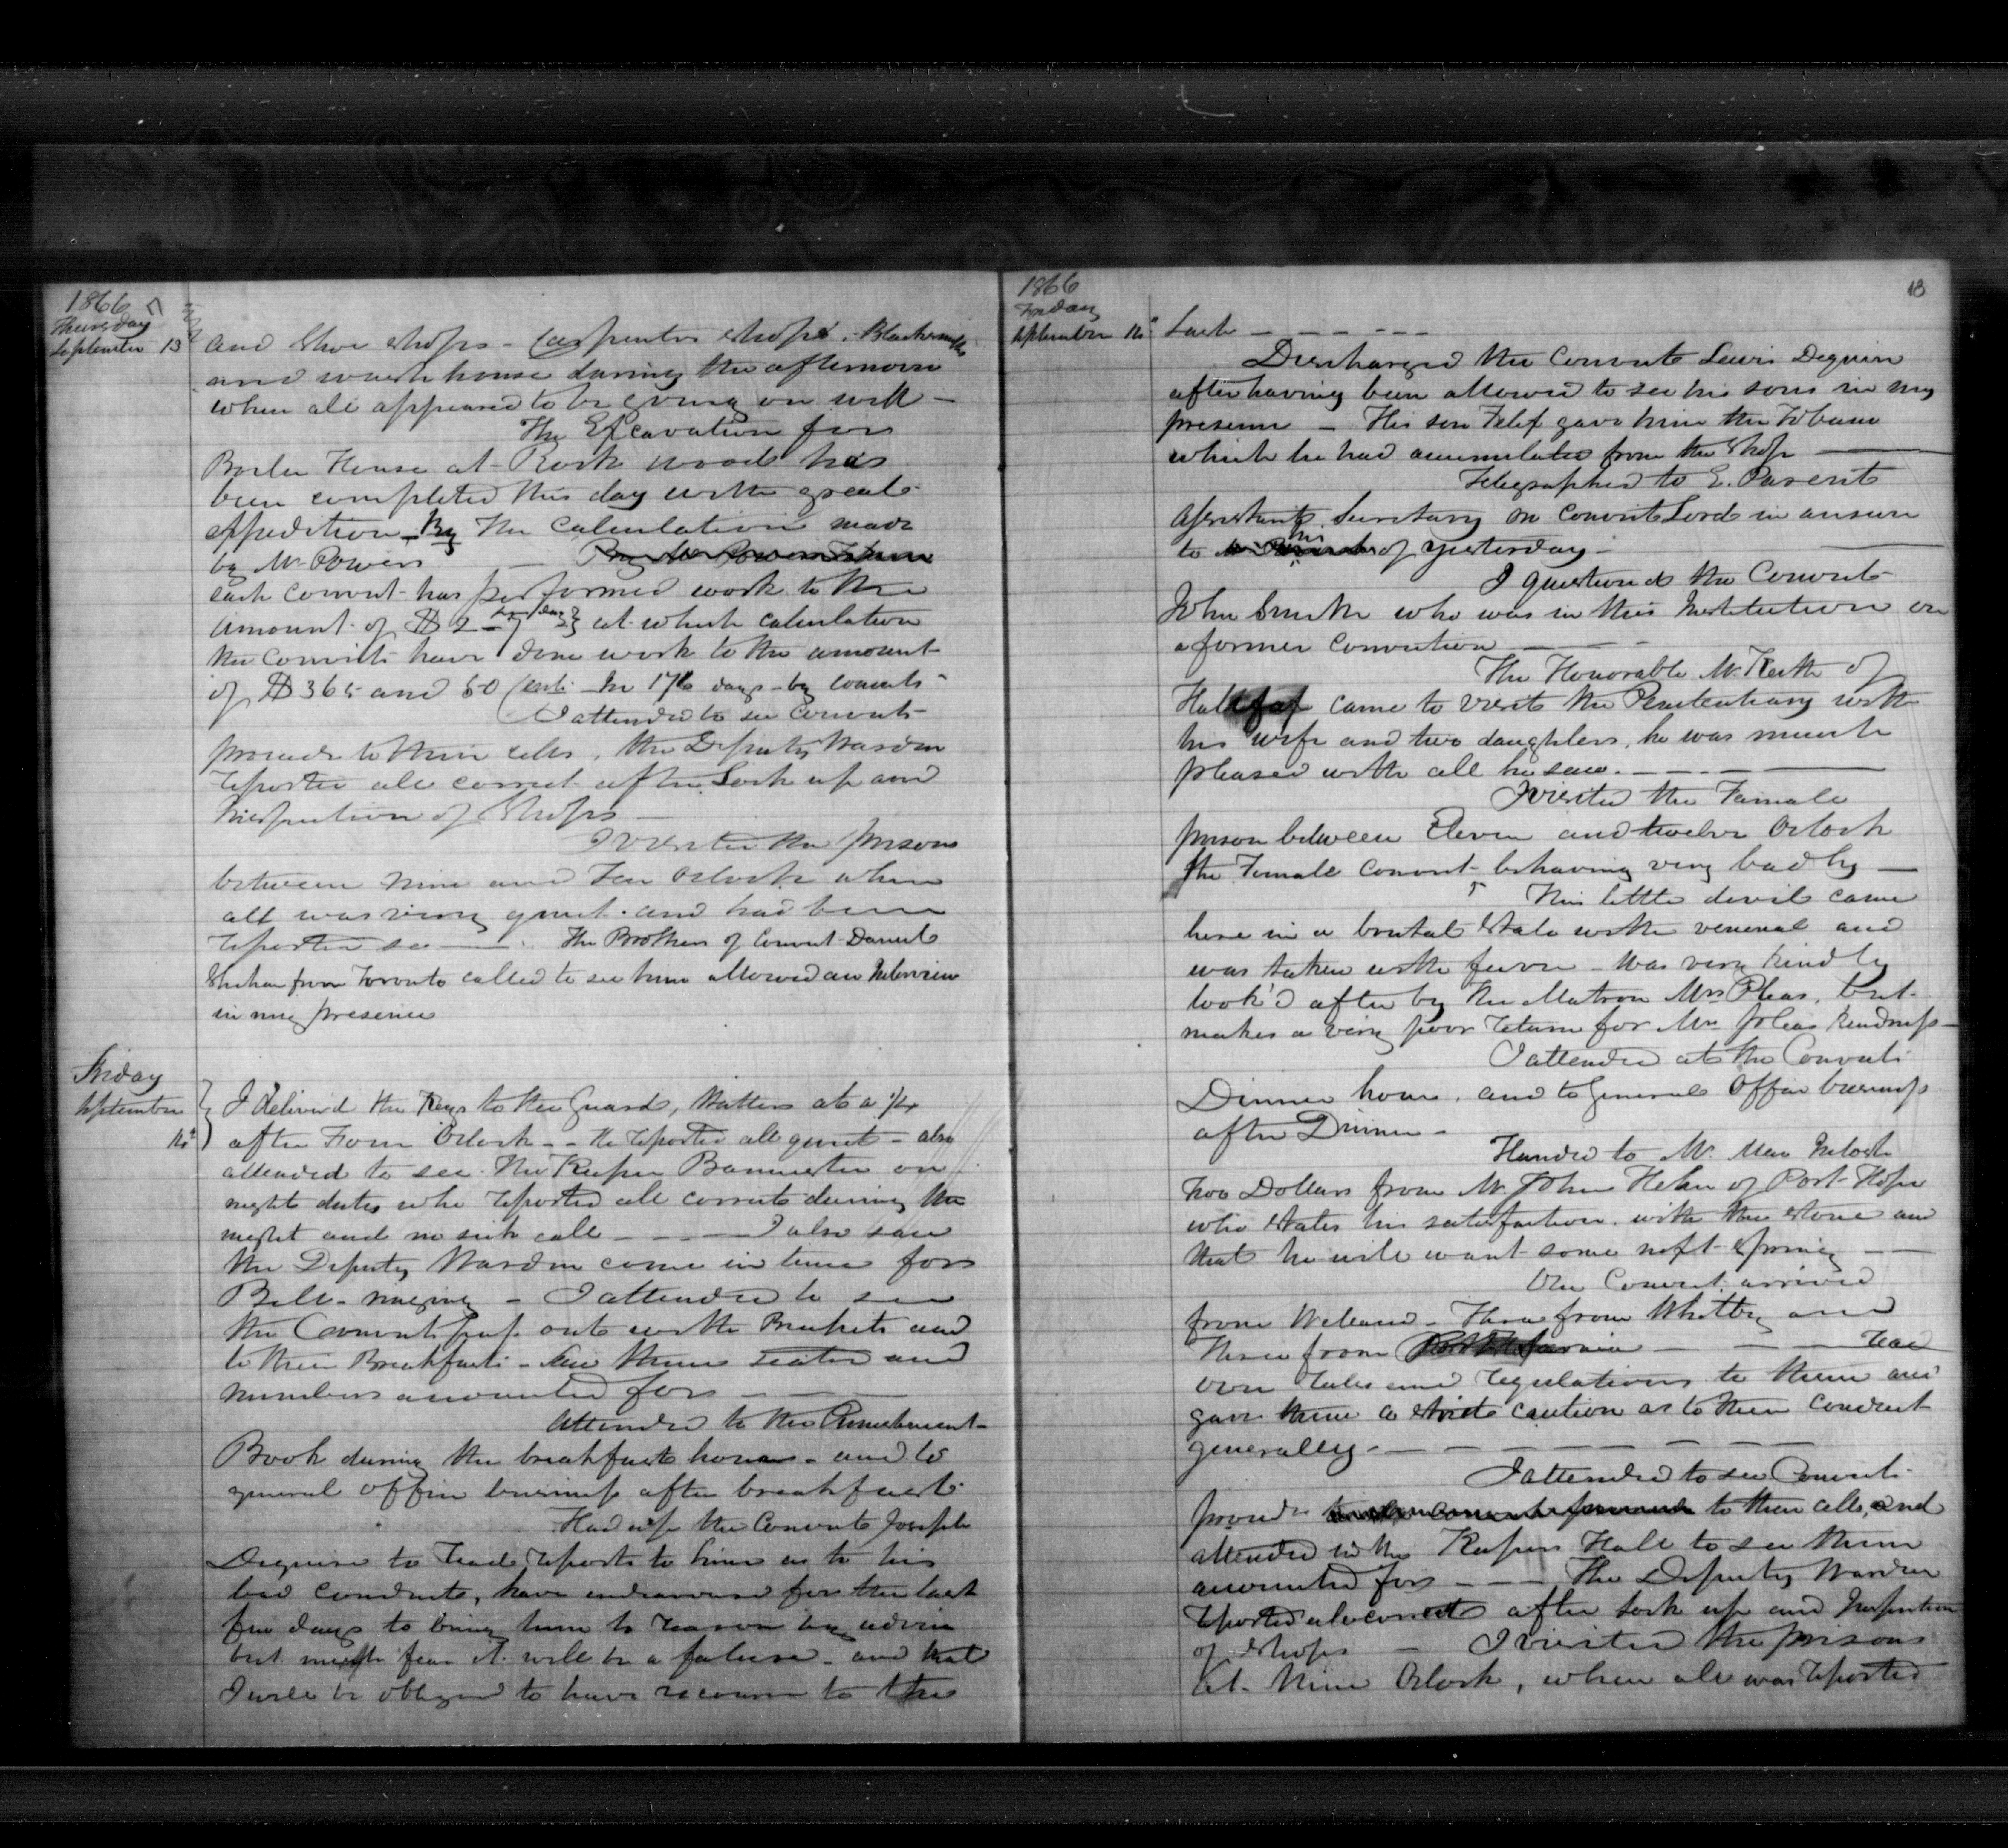 1866
Thursday
September 13
and Shoe Shops - Carpenters Shops. Blacksmiths
and wash house during the afternoon
when all appeared to be going on well -
The Excavation for
Boiler House at Rock wood has
been completed this day with great
expedition - By The Calculation made
by Mr. Powers
each convict has performed work to the
amount of $2 - 7 per day at which calculation
the convicts have done work to the amount
of $365 and 50 Cents - In 176 days - by convicts -
I attended to see convicts
proceed to their cells, the Deputy Warden
reported all correct after Lock up and
Inspection of Shops -
I visited the prisons
between nine and Ten Oclock when
all was very quiet. and had been
reported so - The Brothers of Convict Daniel
Shehan from Toronto called to see him allowed an Interview
in my presence
Friday
September
14th
I delivered the Keys to the Guard, Watters at a 1/4
after Four Oclock - - He reported all quiet - also
attended to see the Keeper Bannister on
night duty who reported all correct during the
night and no sick call - - - - I also saw
the Deputy Warden come in time for
Bell - ringing - I attended to see
the Convicts pass out with Buckets and
to their Breakfast - Saw them seated and
numbers accounted for - - -
Attended to the Punishment
Book during the breakfast hour - and to
general office business after breakfast
Had up the Convict Joseph
Deguire to read reports to him as to his
bad conduct, have endeavoured for the last
few days to bring him to reason by advice
but much fear it will be a failure - and that
I will be obliged to have recourse to the
1866
Friday
September 14
18
Lash - - - - -
Discharged the Convict Lewis Deguire
after having been allowed to see his sons in my
presence - His son gave him the Tobacco
which he had accumulated from the Shop
Telegraphed to E. Parent
Assistant Secretary on Convict Lord in answer
to his of yesterday -
I questioned the Convict
John Smith who was in this Institution on
a former conviction - - -
The Honorable Mr. Keith of
Halifax came to visit the Penitentiary with
his wife and two daughters, he was much
pleased with all he saw. - - -
I visited the Female
prison between Eleven and twelve Oclock
the Female convict behaving very badly -
This little devil came
here in a brutal State with venereal and
was taken with fever - Was very kindly
look'd after by the Matron Mrs Pleas, but
makes a very poor return for Mrs Pleas kindness -
I attended at the Convicts
Dinner hour, and to general Office business
after Dinner -
Handed to Mr. Mac Intosh
Two Dollars from Mr. John Helm of Port-Hope
who states his satisfaction with the stone and
that he will want some next Spring - -
One Convict arrived
from Welland - Three from Whitby and
Three from - - - read
over rules and regulations to them and
gave them a strict caution as to their conduct
generally - - - - - -
I attended to see Convicts
proceed to their cells, and
attended in the Keepers Hall to see them
accounted for - - - The Deputy Warden
reported all correct after Lock up and Inspection
of Shops - I visited the prisons
at Nine Oclock, when all was reported